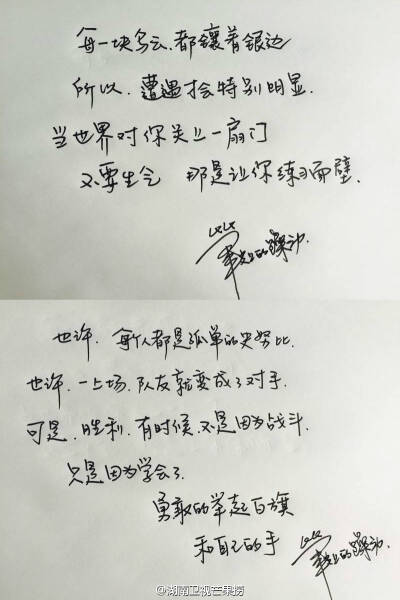 每一块乌云.都镶着银边
所以.遭遇才会特别明显.
当世界对你关上一扇门
不要生气 那是让你练习面壁.
笔尖上的躁动.
也许.每个人都是孤单的史努比.
也许.一上场.队友就变成了对手.
可是.胜利.有时候.不是因为战斗.
只是因为学会了.
勇敢的举起白旗
和自己的手
笔尖上的躁动.
@湖南卫视芒果捞